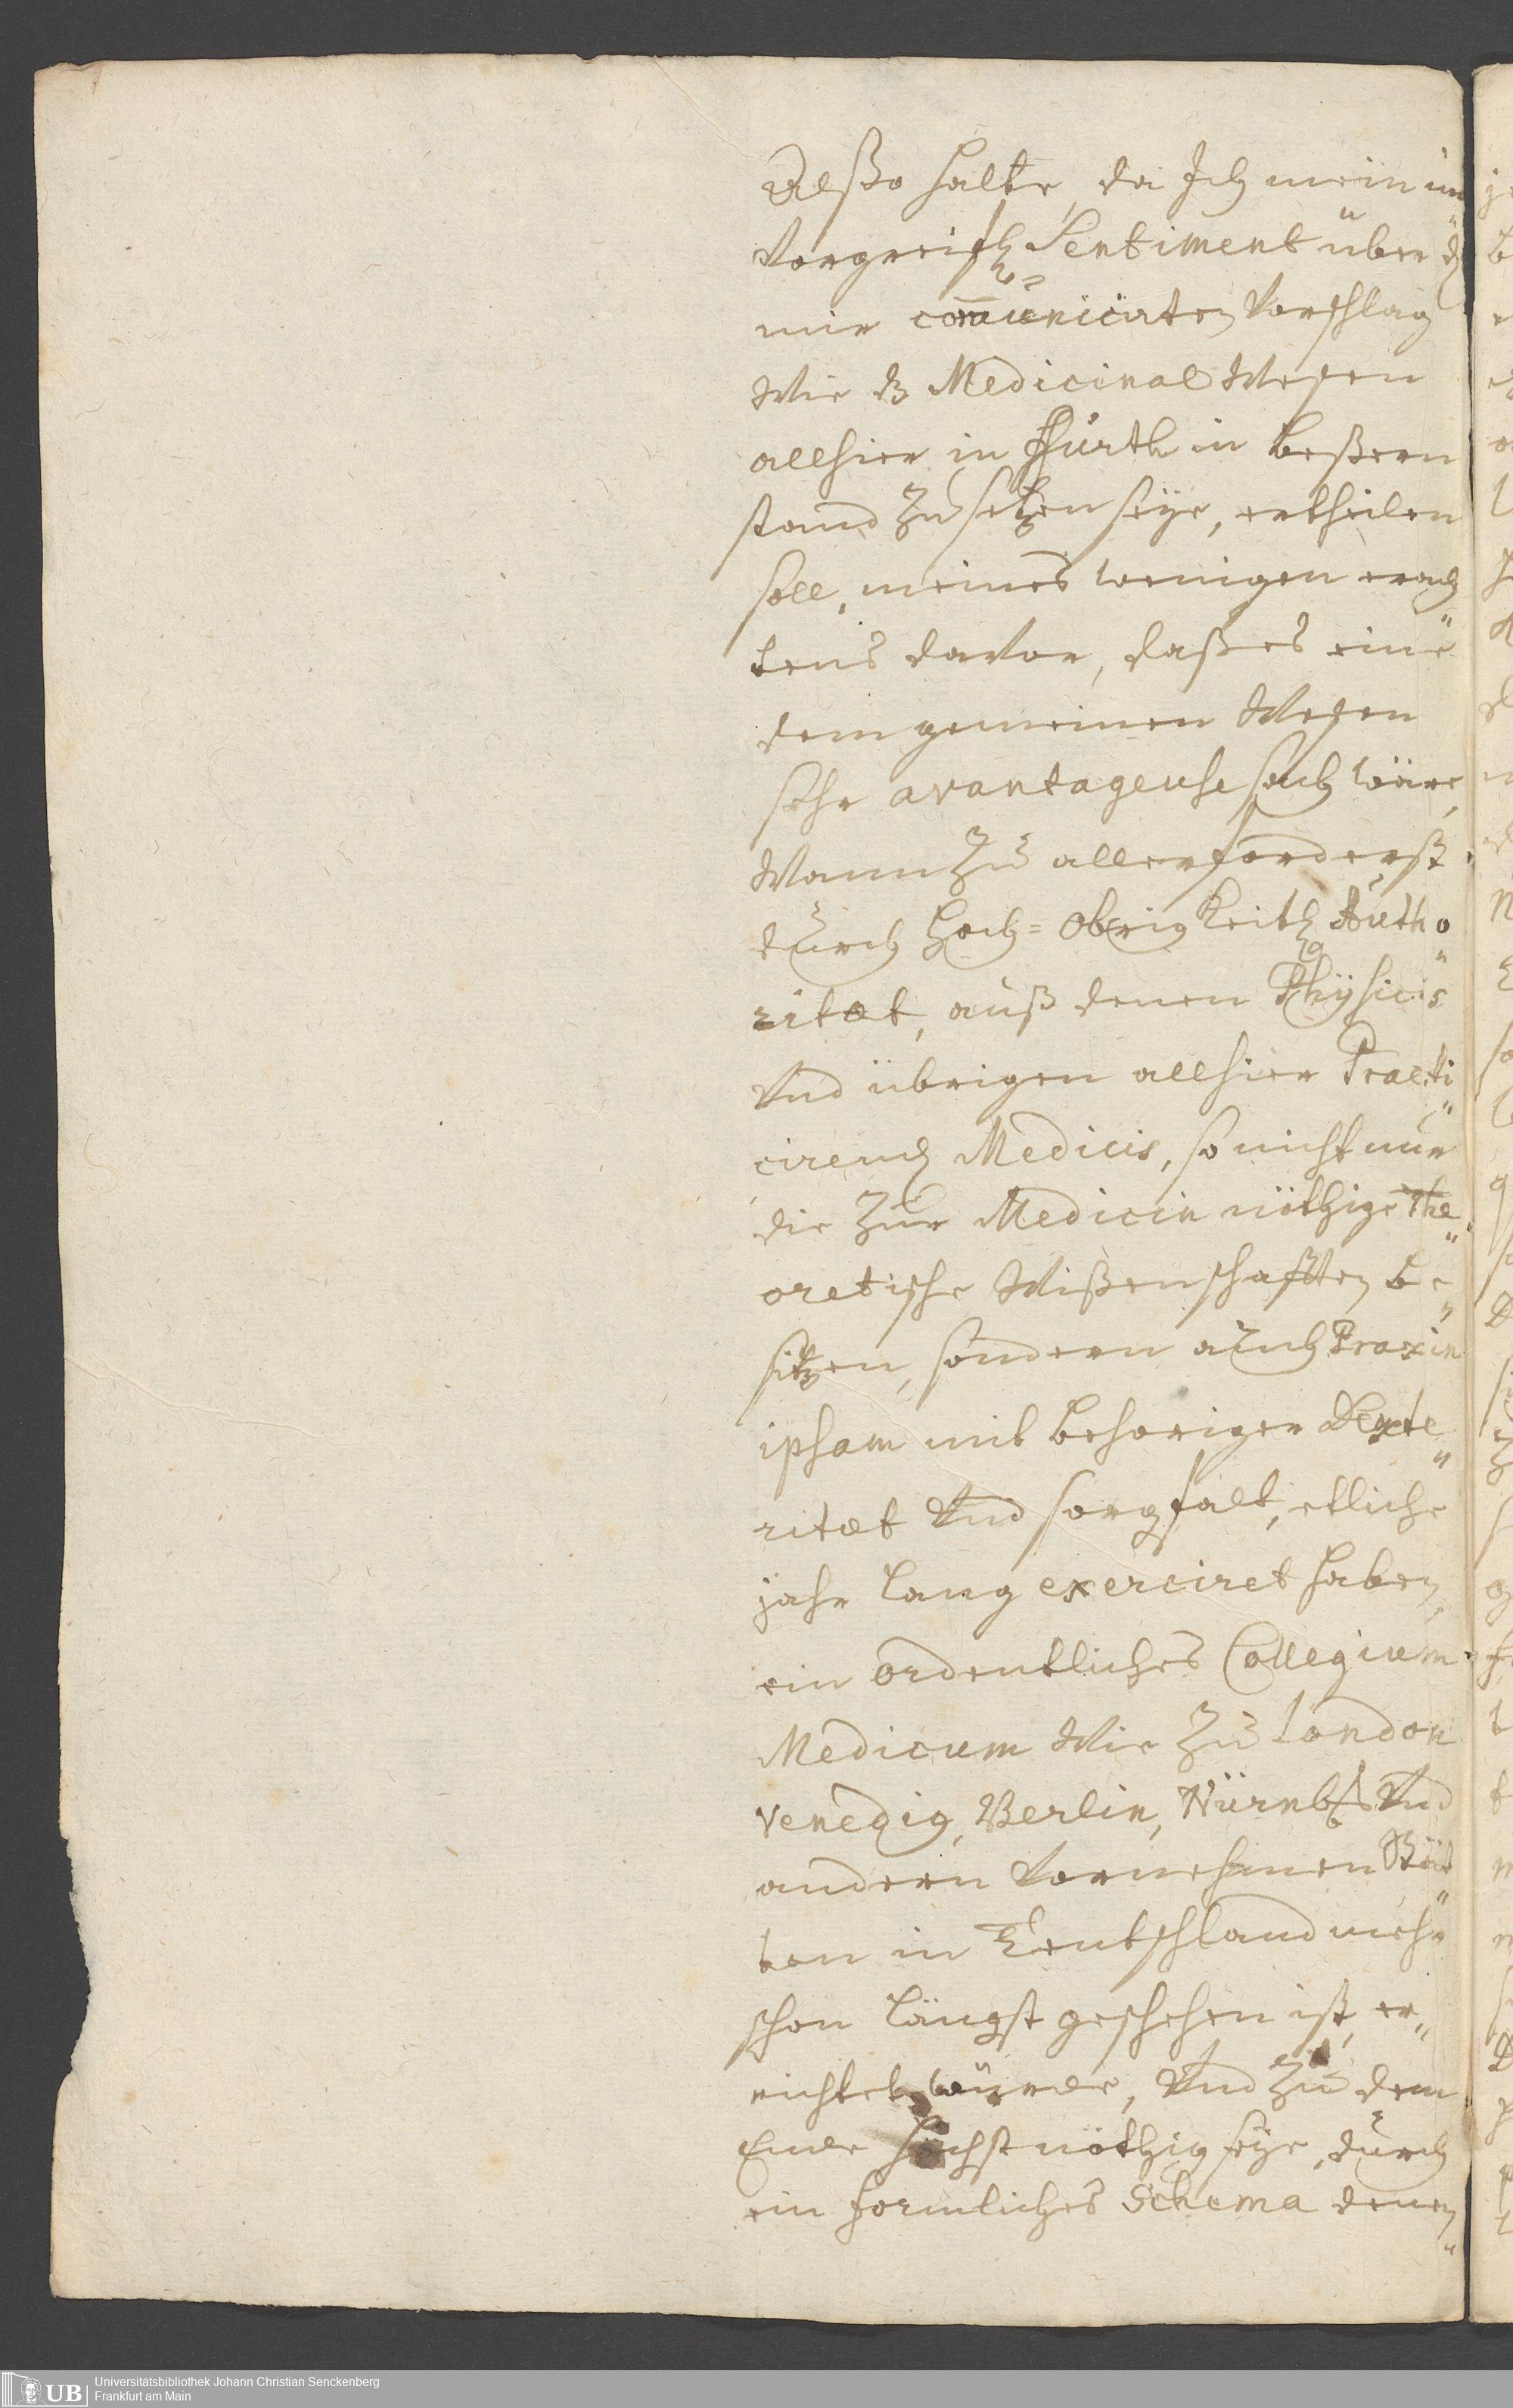 Alßo halte, da Ich mein un„
Vorgreifl Sentiment über d
mir com̄unicirten Vorschlag
Wie dz Medicinal Wesen
allhier in Fürth in beßern
stand zu setzen seÿe, ertheilen
soll, meines wenigen erach„
tens davor, daß es eine
dem gemeinen Wesen
sehr avantageuse sach wäre,
Wann zu allerforderst
durch Hoch=Obrigkeitl Autho„
ritæt, auß denen Phÿsicis
Und übrigen allhier Practi„
cirend Medicis, so nicht nur
die zur Medicin nöthige The„
oretische Wißenschafften be„
sitzen, sondern auch Praxin
ipsam mit behoriger Dexte„
ritæt Und sorgfalt, etliche
jahr lang exerciret haben,
ein ordentliches Collegium
Medicum Wie zu London
Venedig, Berlin, Nürnbg Und
andern Vornehmen Städ„
ten in Teutschland mehr
schon längst geschehen ist, er„
richtet würde, Und zu dem
Ende höchst nöthig seÿe, durch
ein formliches Schema denen„
UB
Universitätsbibliothek Johann Christian Senckenberg
Frankfurt am Main